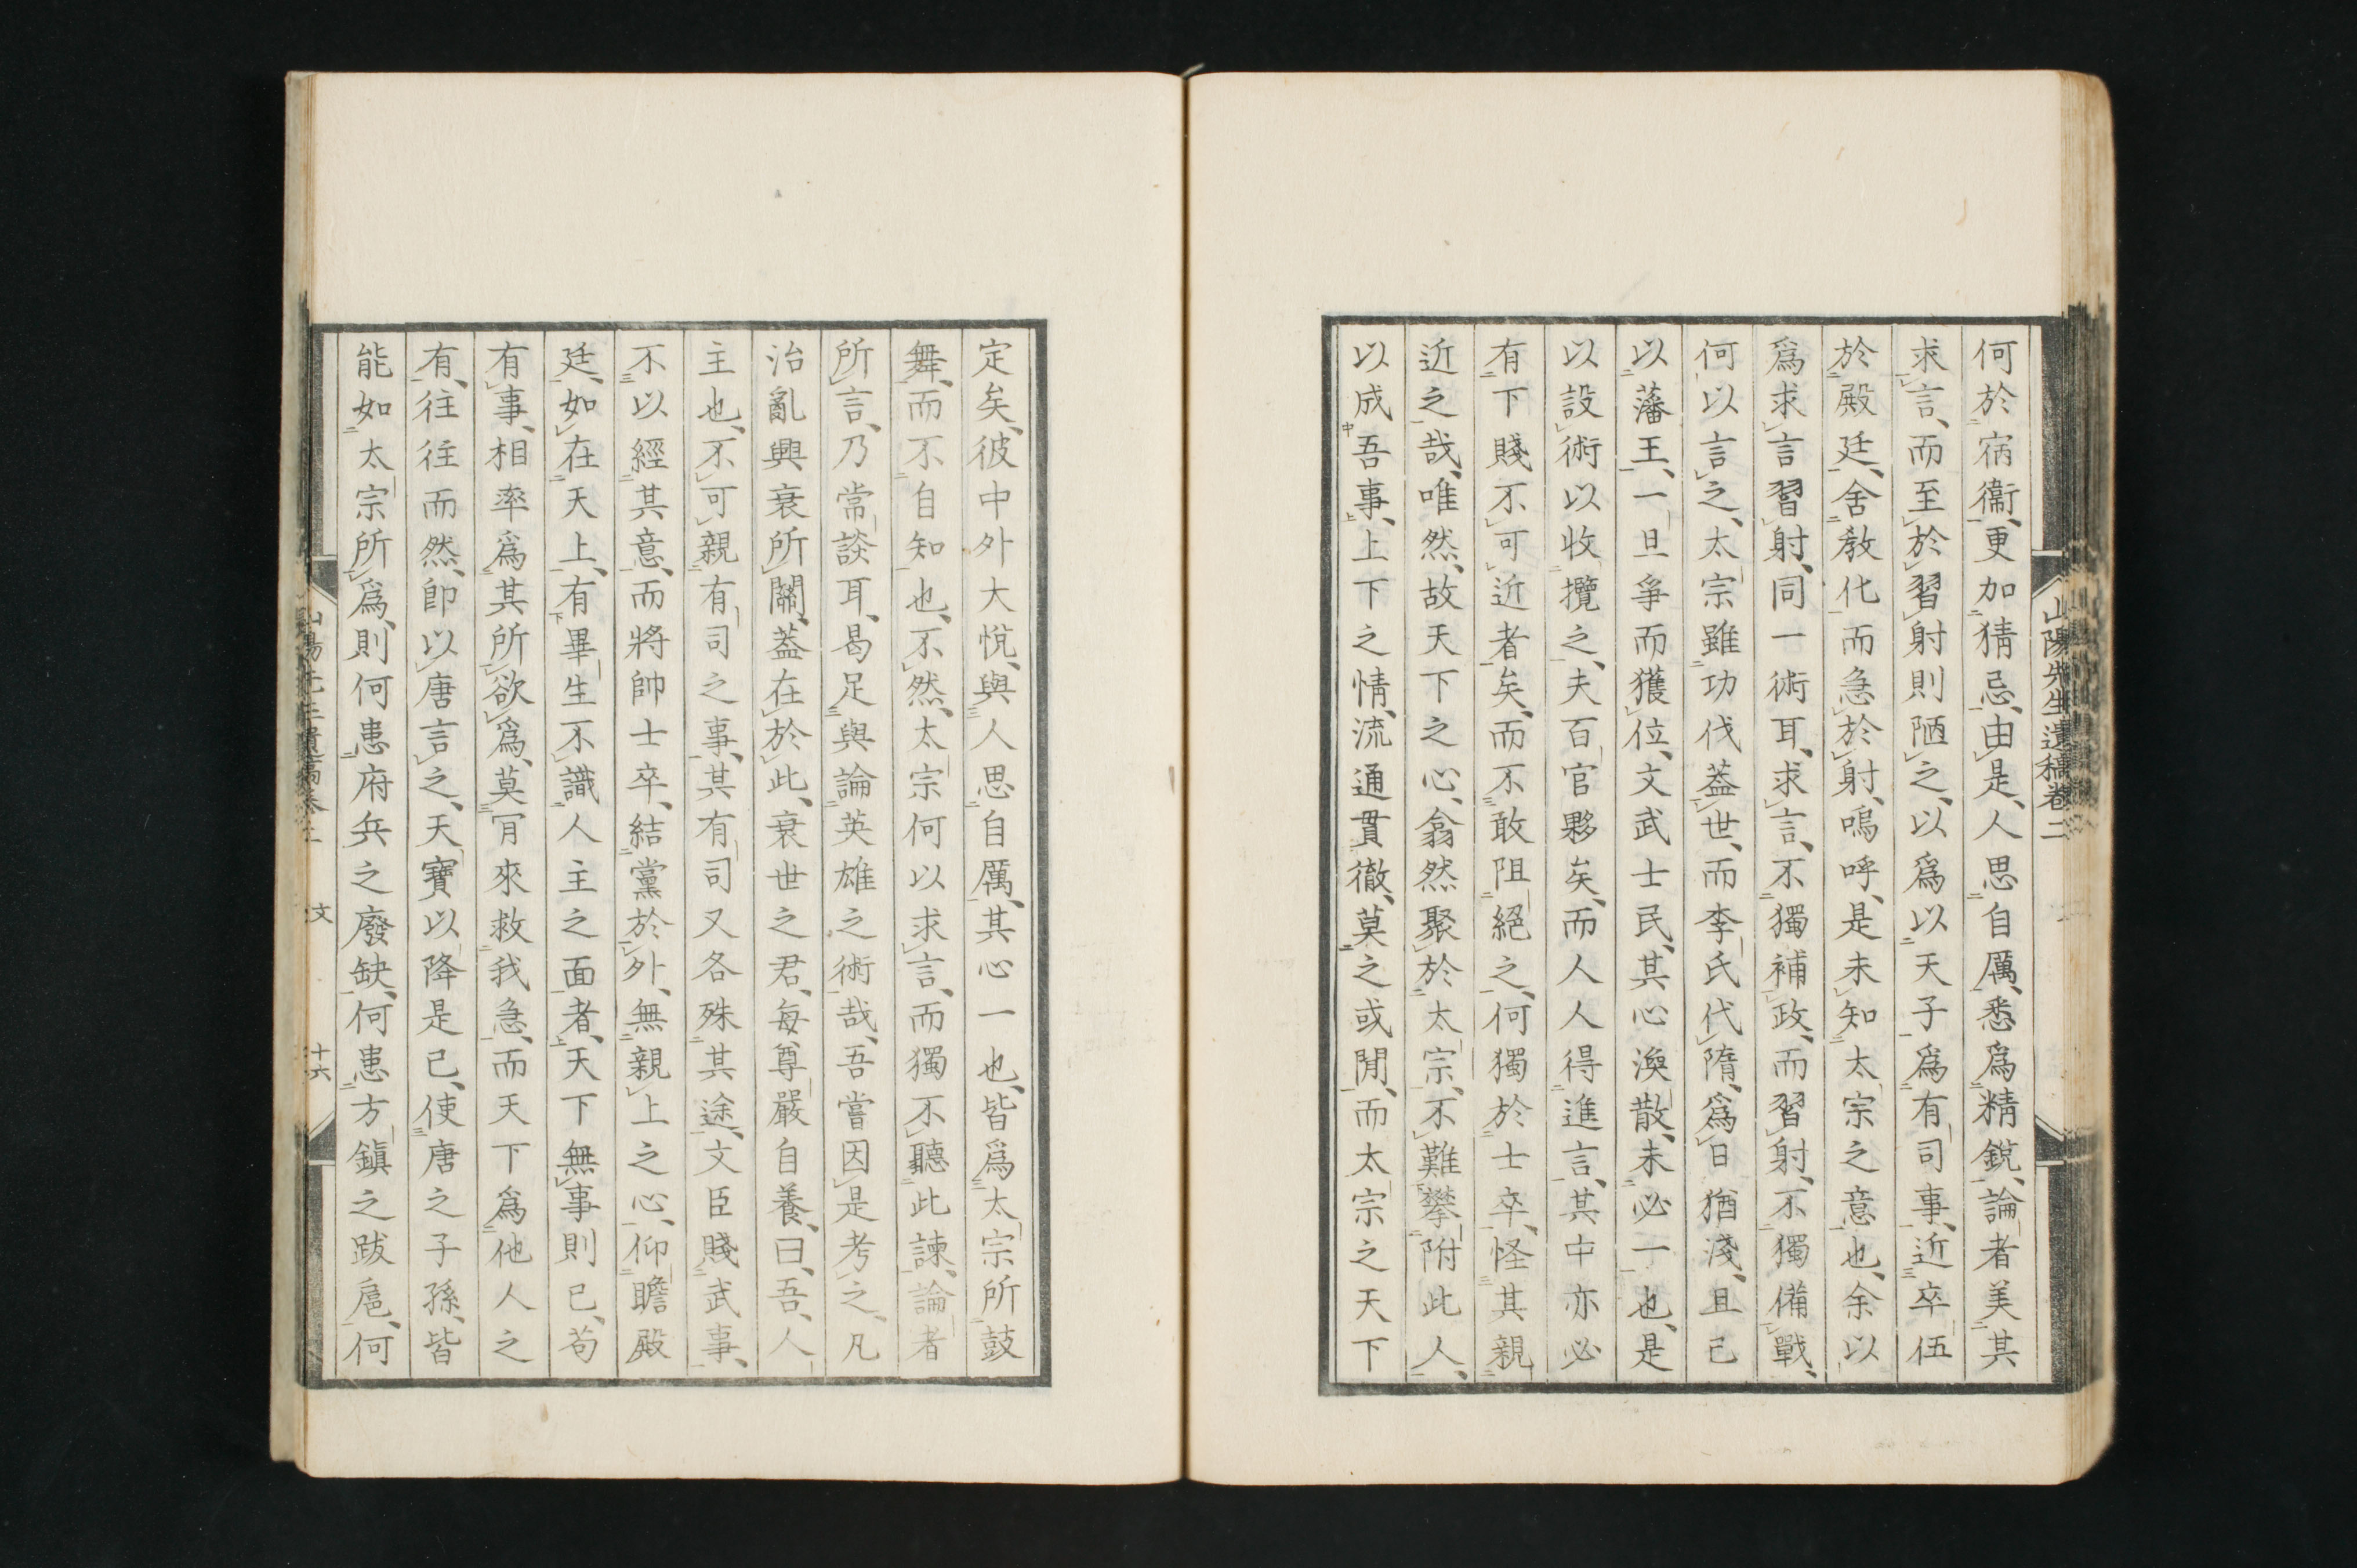 山陽先生遺稿卷二
何於宿衞、更加猜忌、由是、人思自厲、悉爲精銳、論者美其
求言、而至於習射則陋之、以爲以天子爲有司事、近卒伍
於殿廷、舍敎化而急於射、嗚呼、是未知太宗之意也、余以
爲求言習射、同一術耳、求言、不獨補政、而習射、不獨備戰、
何以言之、太宗雖功伐蓋世、而李氏代隋、爲日猶淺、且已
以藩王、一旦爭而獲位、文武士民、其心渙散、未必一也、是
以設術以收攬之、夫百官夥矣、而人人得進言、其中亦必
有下賤不可近者矣、而不敢阻絕之、何獨於士卒、怪其親
近之哉、唯然、故天下之心、翕然聚於太宗、不難攀附此人、
以成吾事、上下之情、流通貫徹、莫之或閒、而太宗之天下
定矣、彼中外大悅、與人思自厲、其心一也、皆爲太宗所鼓
舞、而不自知也、不然、太宗何以求言、而獨不聽此諫、論者
所言、乃常談耳、曷足與論英雄之術哉、吾嘗因是考之、凡
治亂興衰所關、蓋在於此、衰世之君、每尊嚴自養、曰、吾、人
主也、不可親有司之事、其有司又各殊其途、文臣賤武事、
不以經其意、而將帥士卒、結黨於外、無親上之心、仰瞻殿
廷、如在天上、有畢生不識人主之面者、天下無事則已、苟
有事、相率爲其所欲爲、莫肎來救我急、而天下爲他人之
有、往往而然、卽以唐言之、天寶以降是已、使唐之子孫、皆
能如太宗所爲、則何患府兵之廢缺、何患方鎭之跋扈、何
山陽先生遺稿卷二 文 十六